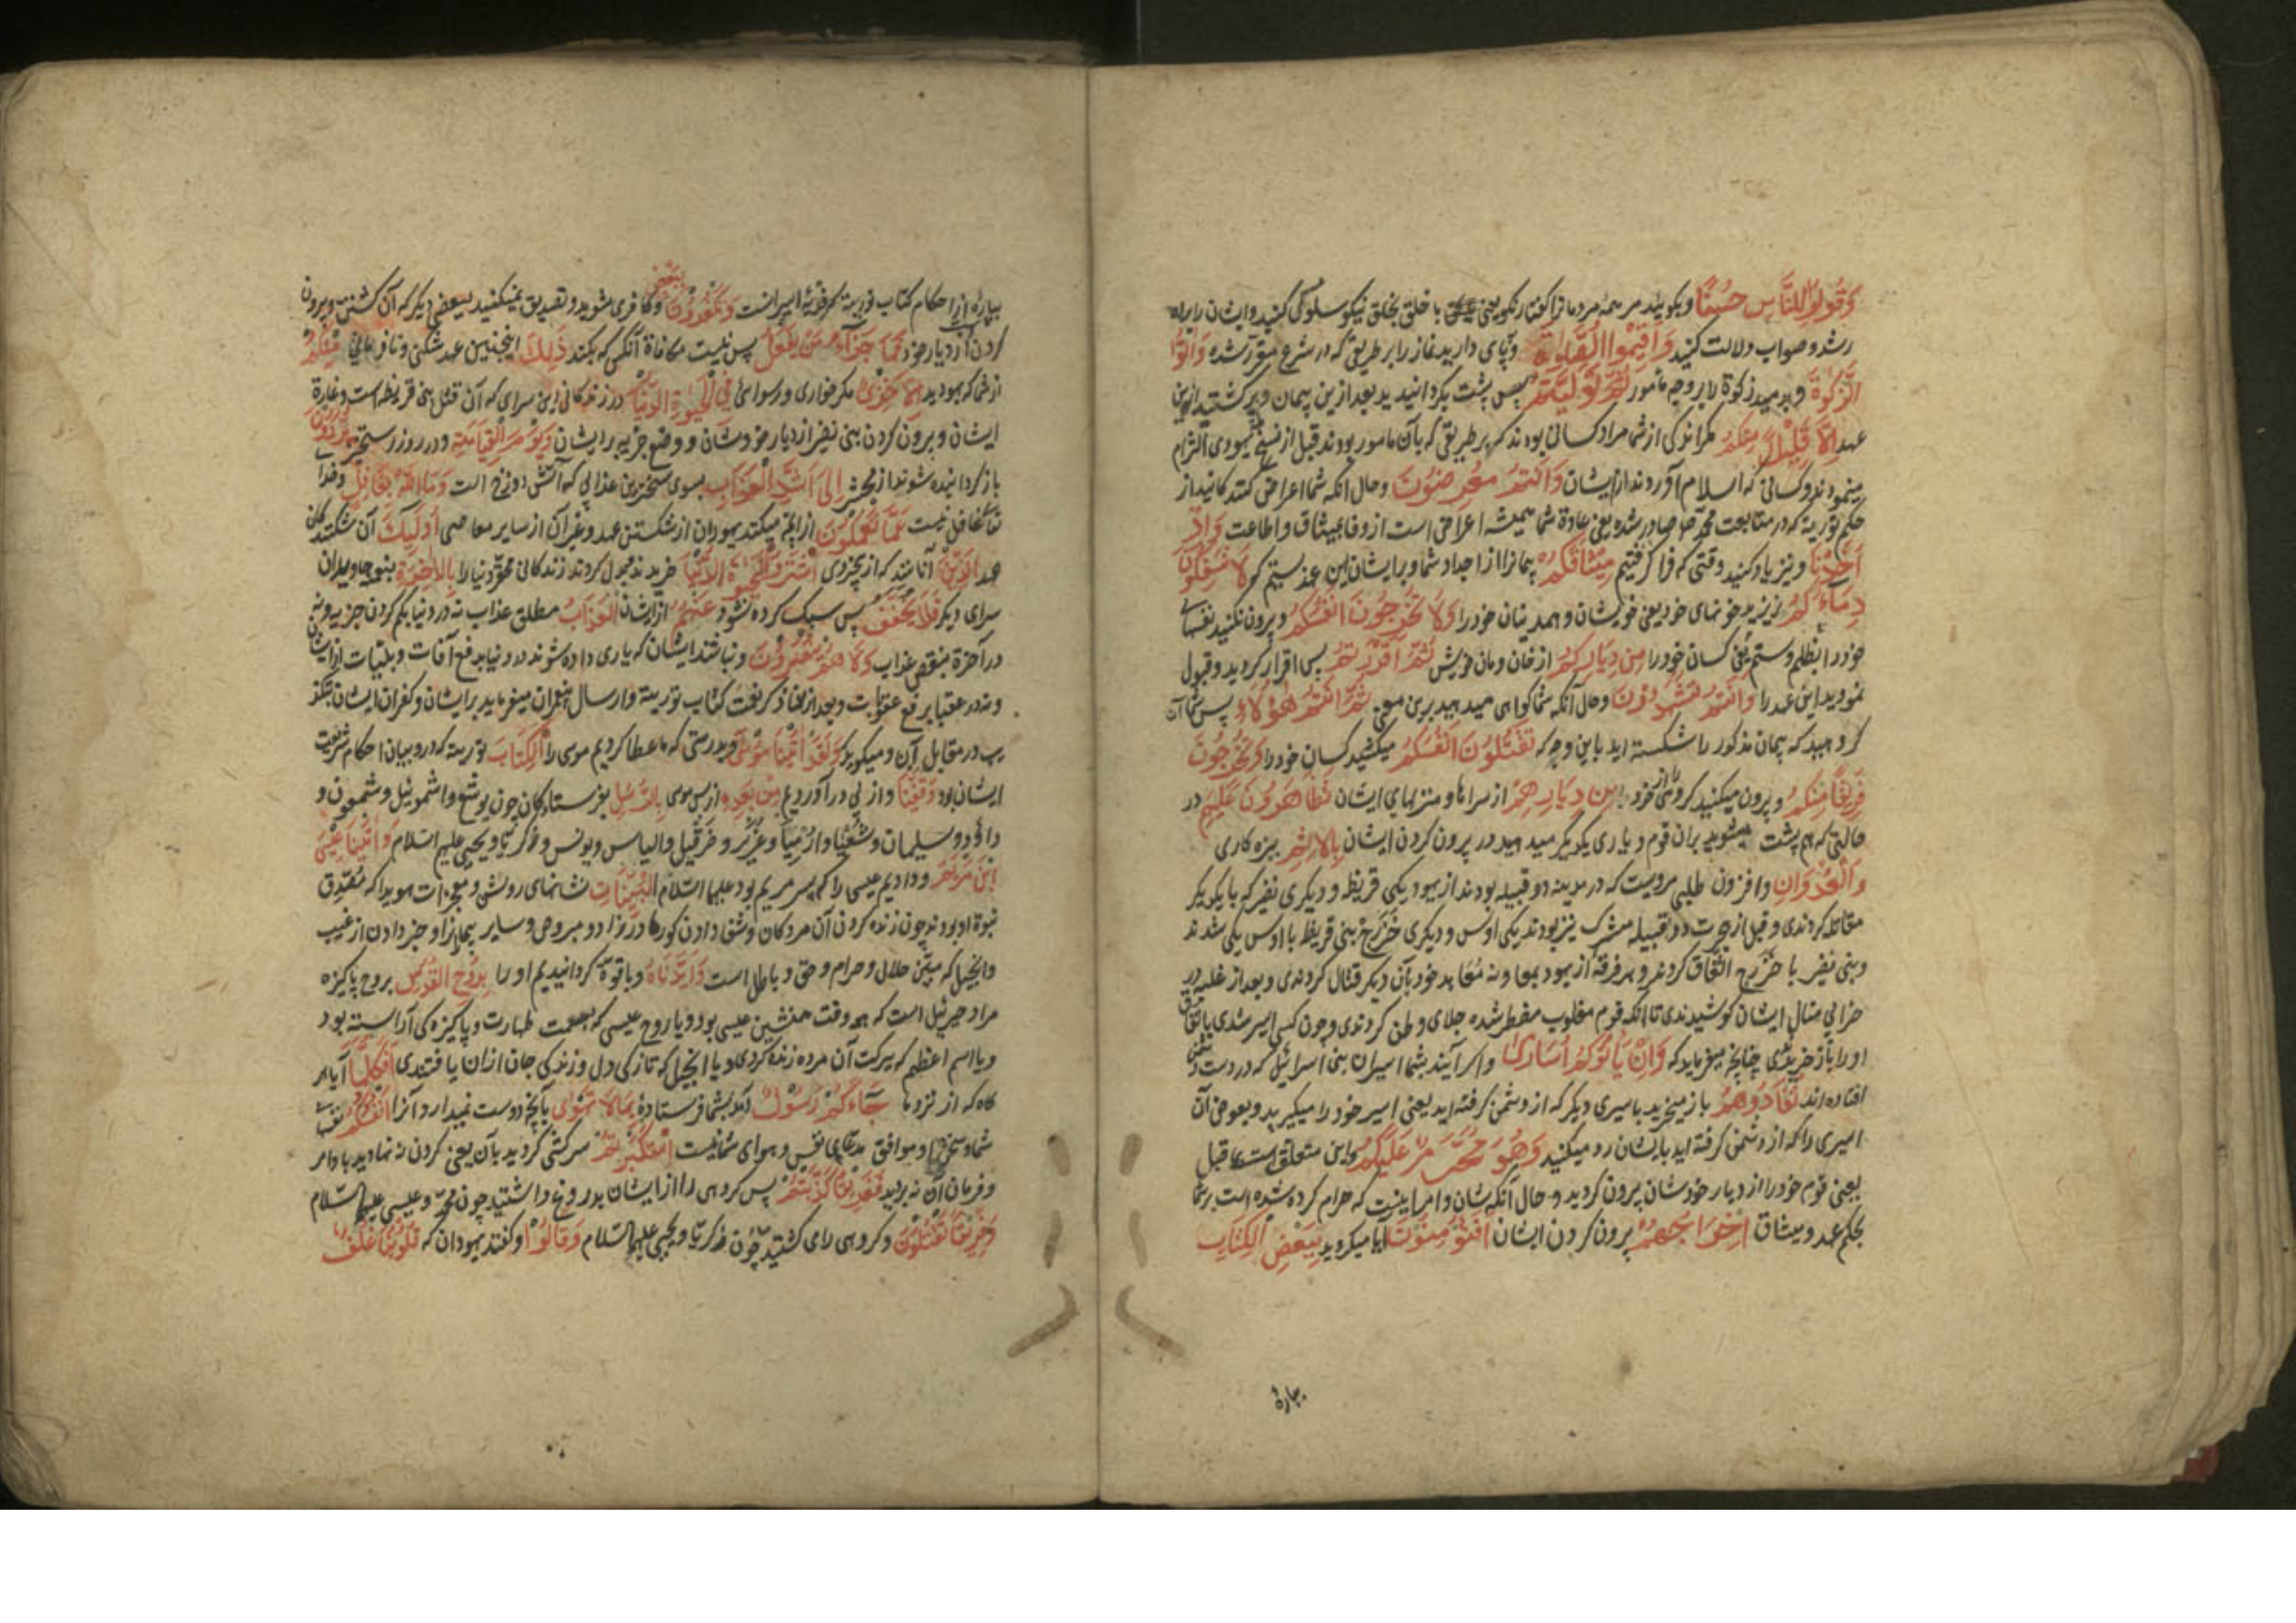 وَقُولُوا لِلنَّاسِ حُسْنًا وبگویید مر همهٔ مردمانرا گفتار نکو یعنی با خلق بخلق نیکو سلوک کنید و ایشان را براه
رشد و صواب دلالت کنید وَاَقِیمُوا الصَّلوٰةَ وبپای دارید نماز را بر طریقی که در شرع مقرر شده وَاٰتُوا
الزَّکوٰةَ وبدهید زکوة را بر وجه مأمور ثُمَّ تَوَلَّیْتُمْ پس پشت بگردانیدید بعد ازین پیمان و برگشتید ازین
عهد اِلَّا قَلِیلًا مِنْکُمْ مگر اندکی از شما مراد کسانی بودند که بر طریقی که بآن مامور بودند قبل از نسخ یهودی التزام
مینمودند و کسانی که اسلام آوردند از ایشان وَاَنْتُمْ مُعْرِضُونَ وحال آنکه شما اعراض کنندکانید از
حکم توریة که در متابعت محمد صادر شده یعنی عادة شما همیشه اعراض است از وفا بمیثاق و اطاعت وَاِذْ
اَخَذْنَا و نیز یاد کنید وقتی که فرا کرفتیم مِیثَاقَکُمْ پیمانرا از اجداد شما و بر ایشان این عهد بستیم که لَا تَسْفِکُونَ
دِمَاءَکُمْ نریزید خونهای خود یعنی خویشان و همدینان خود را وَلَا تُخْرِجُونَ اَنْفُسَکُمْ وبیرون نکنید نفسهای
خود را بظلم و ستم یعنی کسان خود را مِنْ دِیَارِکُمْ از خان و مان خویش ثُمَّ اَقْرَرْتُمْ پس اقرار کردید و قبول
نمودید این عهد را وَاَنْتُمْ تَشْهَدُونَ وحال آنکه شما کواهی میدهید برین معنی ثُمَّ اَنْتُمْ هٰؤُلَاءِ پس شما آن
کروهید که پیمان مذکور را شکسته اید باین وجه که تَقْتُلُونَ اَنْفُسَکُمْ میکشید کسان خود را وَتُخْرِجُونَ
فَرِیقًا مِنْکُمْ وبیرون میکنید کروهی را از خود مِنْ دِیَارِهِمْ از سراها و منزلهای ایشان تَظَاهَرُونَ عَلَیْهِمْ در
حالتی که هم پشت میشوید بران قوم و یاری یکدیگر میدهید در بیرون کردن ایشان بِالْاِثْمِ ببزه کاری
وَالْعُدْوَانِ وافزون طلبی مرویست که در مدینه دو قبیله بودند از یهود یکی قریظه و دیکری نضیر که با یکدیکر
مقاتله کردندی و قبل از هجرت دو قبیله مشرک نیز بودند یکی اوس و دیکری خزرج بنی قریظه با اوس یکی شدند
وبنی نضیر با خزرج اتفاق کردند و هر فرقه از یهود بمعاونه معاهد خود بآن دیکر قتال کردندی و بعد از غلبه در
خرابی منازل ایشان کوشیدندی تا آنکه قوم مغلوب مضطر شده جلای وطن کردندی و چون کسی اسیر شدی باتفاق
او را باز خریدندی چنانچه میفرماید که وَاِنْ یَأْتُوکُمْ اُسَارٰی واکر آیند بشما اسیران بنی اسرائیل که در دست دشمن
افتاده اند تُفَادُوهُمْ باز میخرید باسیری دیکر که از دشمن کرفته اید یعنی اسیر خود را میکیرید و بعوض آن
اسیری را که از دشمن کرفته اید بایشان رد میکنید وَهُوَ مُحَرَّمٌ عَلَیْکُمْ واین متعلق است بما قبل
یعنی قوم خود را از دیار خودشان بیرون کردید و حال آنکه شان و امر اینست که حرام کرده شده است بر شما
بحکم عهد و میثاق اِخْرَاجُهُمْ بیرون کردن ایشان اَفَتُؤْمِنُونَ آیا میکروید بِبَعْضِ الْکِتَابِ
بپارهٔ
بپارهٔ از احکام کتاب توریة که فدیهٔ اسیرانست وَتَکْفُرُونَ بِبَعْضٍ وکافری مشوید و تصدیق نمیکنید ببعضی دیکر که آن کشتن و بیرون
کردن از دیار خود فَمَا جَزَاءُ مَنْ یَفْعَلُ پس نیست مکافاة آنکس که بکند ذٰلِکَ اینچنین عهد شکنی و نافرمانی مِنْکُمْ
از شما که یهودید اِلَّا خِزْیٌ مکر خواری و رسوائی فِی الْحَیٰوةِ الدُّنْیَا در زندکانی این سرای که آن قتل بنی قریظه است و غارة
ایشان و بیرون کردن بنی نضیر از دیار خودشان و وضع جزیه بر ایشان وَیَوْمَ الْقِیَامَةِ ودر روز رستخیز یُرَدُّونَ
باز کردانیده شوند از محشر اِلٰی اَشَدِّ الْعَذَابِ بسوی سختترین عذابی که آتش دوزخ است وَمَا اللّٰهُ بِغَافِلٍ وخدا
تعالی غافل نیست عَمَّا تَعْمَلُونَ از آنچه میکنند یهودان از شکستن عهد و غیر آن از سایر معاصی اُولٰئِکَ آن شکنندکان
عهد الَّذِینَ آنانند که از بیخردی اشْتَرَوُا الْحَیٰوةَ الدُّنْیَا خریدند و بدل کردند زندکانی دنیا را بِالْاٰخِرَةِ بنعیم جاویدان
سرای دیکر فَلَا یُخَفَّفُ پس سبک کرده نشود عَنْهُمُ از ایشان الْعَذَابُ مطلق عذاب نه در دنیا بکم کردن جزیه و نه
در آخرة بنقص عذاب وَلَا هُمْ یُنْصَرُونَ ونباشند ایشان که یاری داده شوند در دنیا بدفع آفات و بلیات از ایشان
و نه در عقبا برفع عقوبات و بعد از نفاذ ذکر نعمت کتاب توریة و ارسال پیغمبران میفرماید بر ایشان و کفران ایشان
در مقابل آن و میکوید وَلَقَدْ اٰتَیْنَا مُوسٰی وبدرستی که ما عطا کردیم موسی را الْکِتَابَ توریة که در وبیان احکام شریعت
ایشان بود وَقَفَّیْنَا واز پی در آوردیم مِنْ بَعْدِهِ از پس موسی بِالرُّسُلِ بفرستادکان چون یوشع و اشموئیل و شمعون و
داؤد و سلیمان و شعیا و ارمیا و عزیر و حزقیل و الیاس و یونس و زکریا و یحیی علیهم السلام وَاٰتَیْنَا عِیسَی
ابْنَ مَرْیَمَ ودادیم عیسی را که پسر مریم بود علیهما السلام الْبَیِّنَاتِ نشانهای روشن و معجزات هویدا که مصدق
نبوة او بودند چون زنده کردن آن مردکان و شفا دادن کور مادرزاد و مبروص و سایر بیمارانرا و خبر دادن از غیب
وانجیل که مبین حلال و حرام و حق و باطل است وَاَیَّدْنَاهُ وباقوة کردانیدیم او را بِرُوحِ الْقُدُسِ بروح پاکیزه
مراد جبرئیل است که همه وقت همنشین عیسی بود و یا روح عیسی که بعصمت طهارت و پاکیزه کی آراسته بود
ویا اسم اعظم که ببرکت آن مرده زنده کردی و یا انجیل که تازکی دل و زندکی جان ازان یافتندی اَفَکُلَّمَا آیا هر
کاه که از نزد ما جَاءَکُمْ رَسُولٌ آید بشما فرستادهٔ بِمَا لَا تَهْوٰی بآنچه دوست نمیدارد آنرا اَنْفُسُکُمُ نفسهای
شما و موافق مدعای نفس و هوای شما نیست اسْتَکْبَرْتُمْ سرکشی کردید بآن یعنی کردن نه نهادید باوامر
وفرمان آن نه بردید فَفَرِیقًا کَذَّبْتُمْ پس کروهی را از ایشان بدروغ داشتید چون محمد و عیسی علیهما السلام
وَفَرِیقًا تَقْتُلُونَ وکروهی را می کشتید چون زکریا و یحیی علیهما السلام وَقَالُوا وکفتند یهودان که قُلُوبُنَا غُلْفٌ